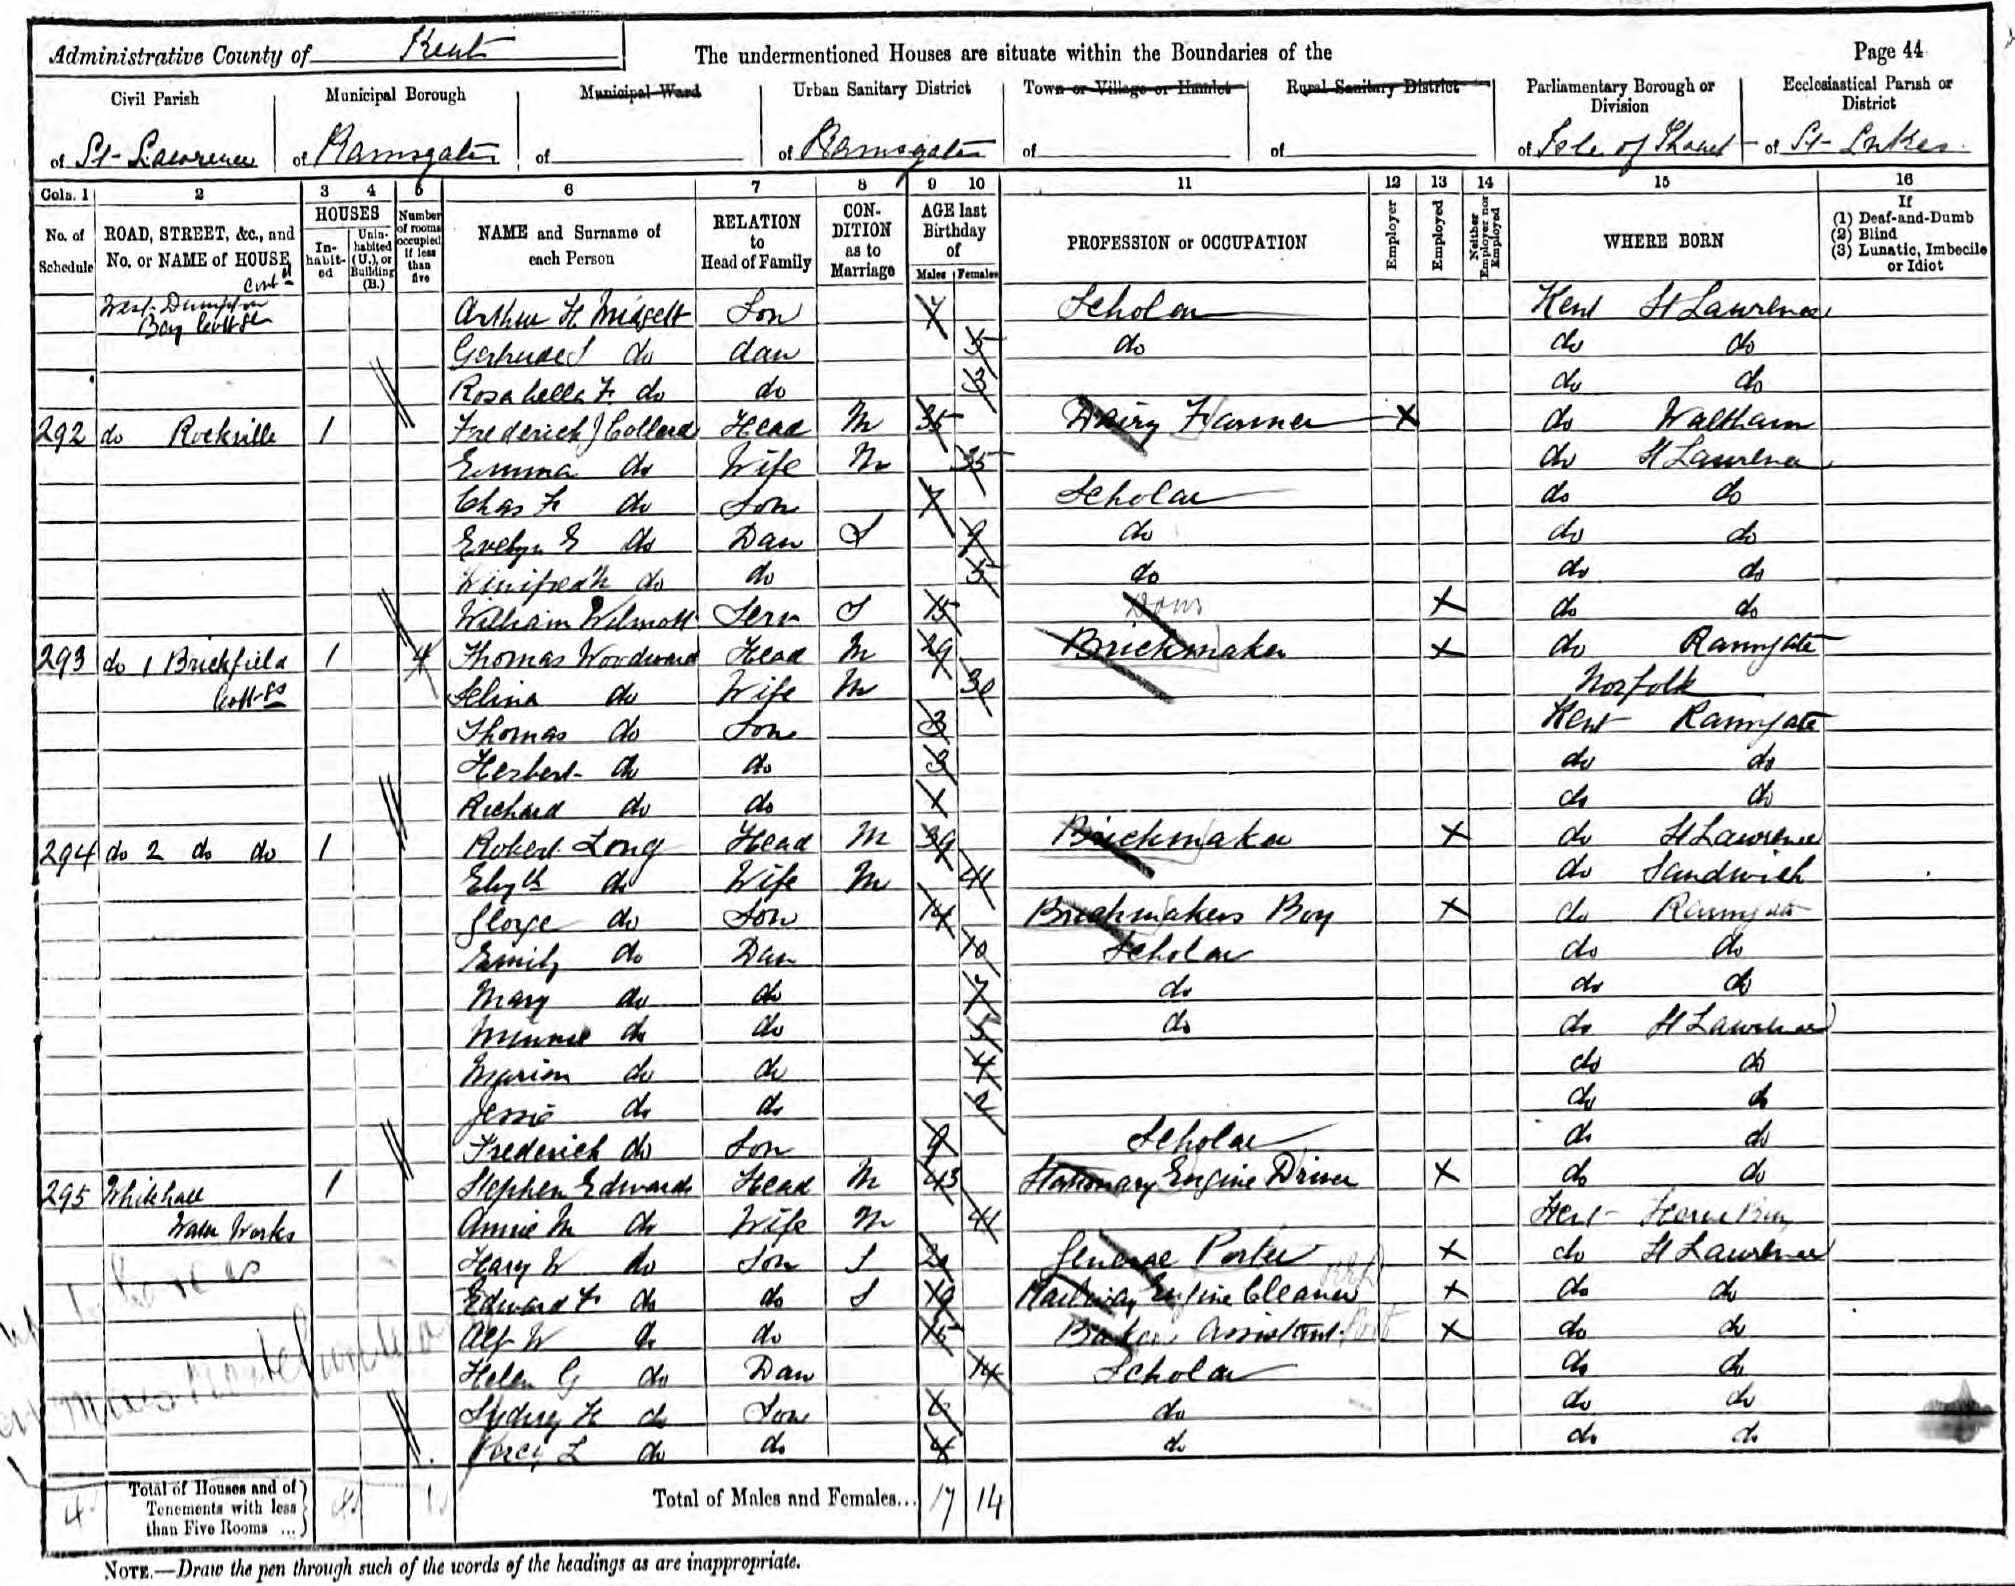 Administrative County of Kent
The undermentioned Houses are situate within the Boundaries of the
Page 44
Civil Parish
of St Lawrence
Municipal Borough
of Ramsgate
Municipal Ward
of
Urban Sanitary District
of Ramsgate
Town or Village or Hamlet
of
Rural Sanitary District
of
Parliamentary Borough or Division
of Isle of Thanet
Ecclesiastical Parish or District
of St Lukes
Cols. 1 2 3 4 5 6 7 8 9 10 11 12 13 14 15 16
No. of Schedule
ROAD, STREET, &c., and No. or NAME of HOUSE
HOUSES
Inhabited
Uninhabited (U.), or Building (B.)
Number of rooms occupied if less than five
NAME and Surname of each Person
RELATION to Head of Family
CONDITION as to Marriage
AGE last Birthday of
Males Females
PROFESSION or OCCUPATION
Employer
Employed
Neither Employer nor Employed
WHERE BORN
If
(1) Deaf-and-Dumb
(2) Blind
(3) Lunatic, Imbecile or Idiot
West Dumpton Bay Cottge Contd Arthur H Midgett Son 7 Scholar Kent St Lawrence
Gertrude S do dau 5 do do do
Rosabella F. do do 3 do do
292 do Rockville 1 Frederick J Collard Head M 35 Dairy Farmer X do Waltham
Emma do Wife M 35 do St Lawrence
Chas F do Son 7 Scholar do do
Evelyn E do Dau S 9 do do do
Winifred M do do 5 do do do
William Wilmott Serv S 15 Dom X do do
293 do 1 Brickfield Cottgs 1 4 Thomas Woodward Head M 29 Brickmaker X do Ramsgate
Selina do Wife M 30 Norfolk
Thomas do Son 3 Kent Ramsgate
Herbert do do 3 do do
Richard do do 1 do do
294 do 2 do do 1 Robert Long Head M 39 Brickmaker X do St Lawrence
Elizth do Wife M 41 do Sandwich
George do Son 14 Brickmakers Boy X do Ramsgate
Emily do Dau 10 Scholar do do
Mary do do 7 do do do
Minnie do do 5 do do St Lawrence
Marion do do 4 do do
Jessie do do 2 do do
Frederick do Son 9 Scholar do do
295 Whitehall Water Works 1 Stephen Edwards Head M 43 Stationary Engine Driver X do do
Annie M do Wife M 41 Kent Herne Bay
Harry W do Son S 20 General Porter X do St Lawrence
Edward F do do S 19 Railway Engine Cleaner X do do
Alf W do do 15 Baker Assistant X do do
Helen G do Dau 14 Scholar do do
Sydney H do Son 6 do do do
Percy L do do 4 do do do
4 Total of Houses and of Tenements with less than Five Rooms ... 4 1 Total of Males and Females... 17 14
NOTE.—Draw the pen through such of the words of the headings as are inappropriate.